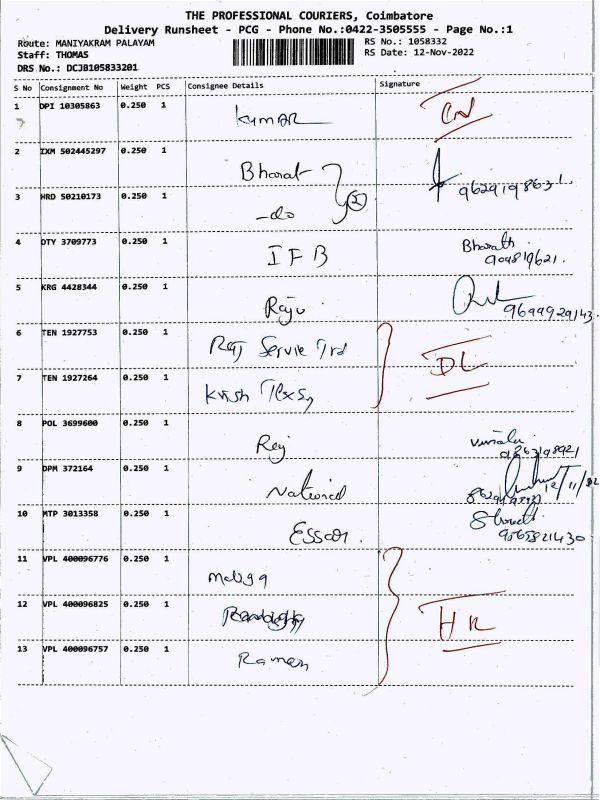 THE PROFESSIONAL COURIERS, Coimbatore
Delivery Runsheet - PCG - Phone No.:0422-3505555 - Page No.:1
Route: MANIYAKRAM PALAYAM RS No.: 1058332
Staff: THOMAS RS Date: 12-Nov-2022
DRS No.: DCJB105833201
S No Consignment No Weight PCS Consignee Details Signature
1 DPI 10305863 0.250 1 Kumar
2 IXM 502445297 0.250 1 Bharat 9629198631
3 HRD 50210173 0.250 1 -do 2
4 OTY 3709773 0.250 1 IFB Bharath
5 KRG 4428344 0.250 1 Raju
6 TEN 1927753 0.250 1 Raj Servie Trd DL
7 TEN 1927264 0.250 1 Krish
8 POL 3699600 0.250 1 Rej
9 DPM 372164 0.250 1 National 12/11/22
10 MTP 3013358 0.250 1 Essar.
9565821430
11 VPL 400096776 0.250 1
12 VPL 400096825 0.250 1 HR
13 VPL 400096757 0.250 1 Raman